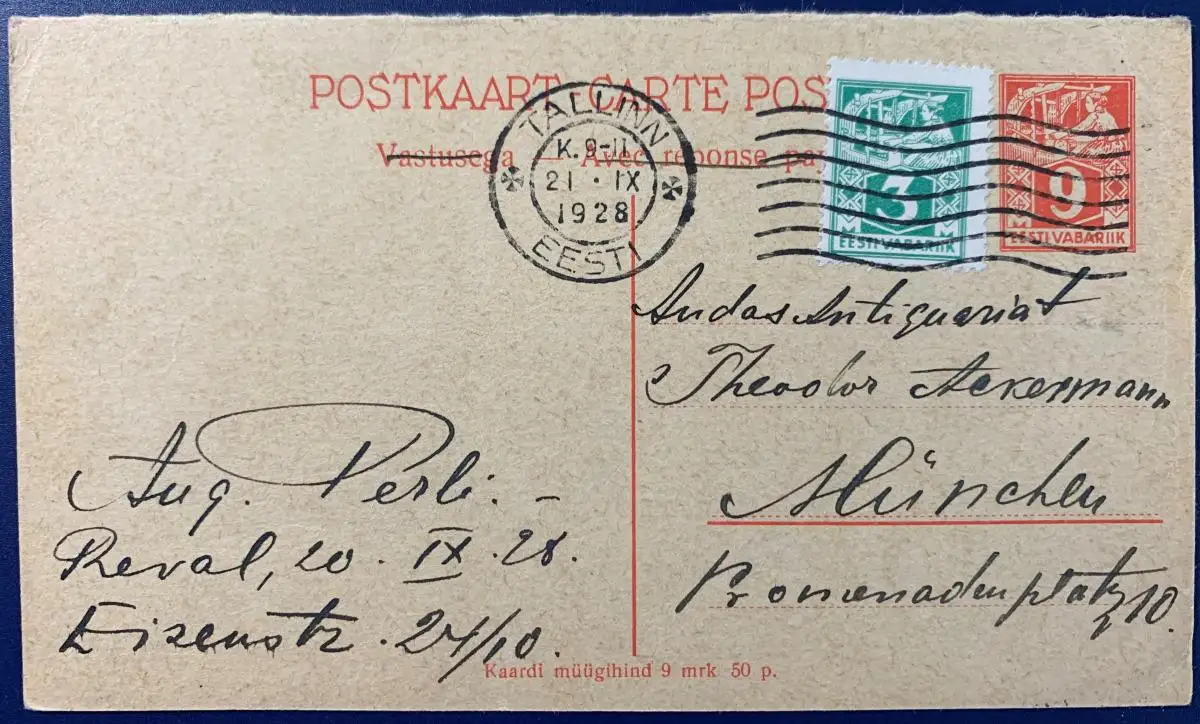 POSTKAART CARTE POS
Vastusega — Avec réponse pa
TALLINN
K. 9-11
21 · IX
1928
EESTI
3
EESTI VABARIIK
9
EESTI VABARIIK
Antiquariat
Theodor Ackermann
München
Promenadenplatz 10.
Aug. Perli. –
Reval, 20. IX. 28.
Eisenstr. 24/10.
Kaardi müügihind 9 mrk 50 p.